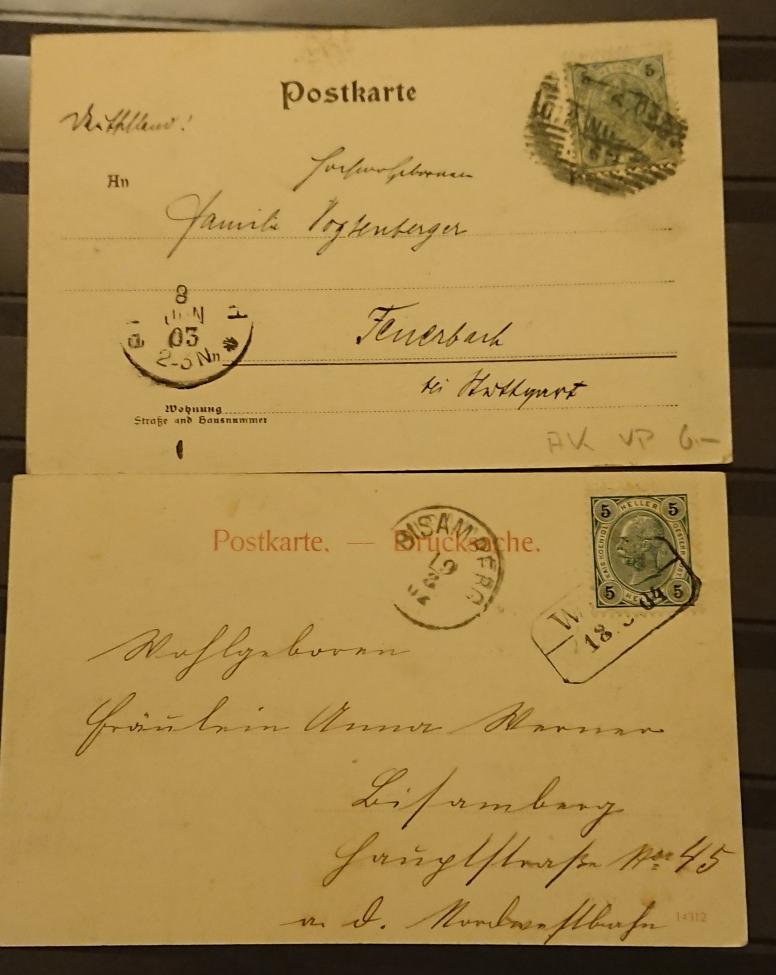 Postkarte
Deutschland!
An
Hochwohlgeboren
Familie
Feuerbach
bei Stuttgart
8
JUN
03
2-3Nn
Wohnung
Straße und Hausnummer
AK VP 6.-
5
Postkarte. — Drucksache.
BISAMBERG
19
3
04
5 HELLER 5
5 5
18. 3. 04
Wohlgeboren
Fräulein Anna Werner
Bisamberg
Hauptstraße Nro 45
a. d. Nordwestbahn
14312